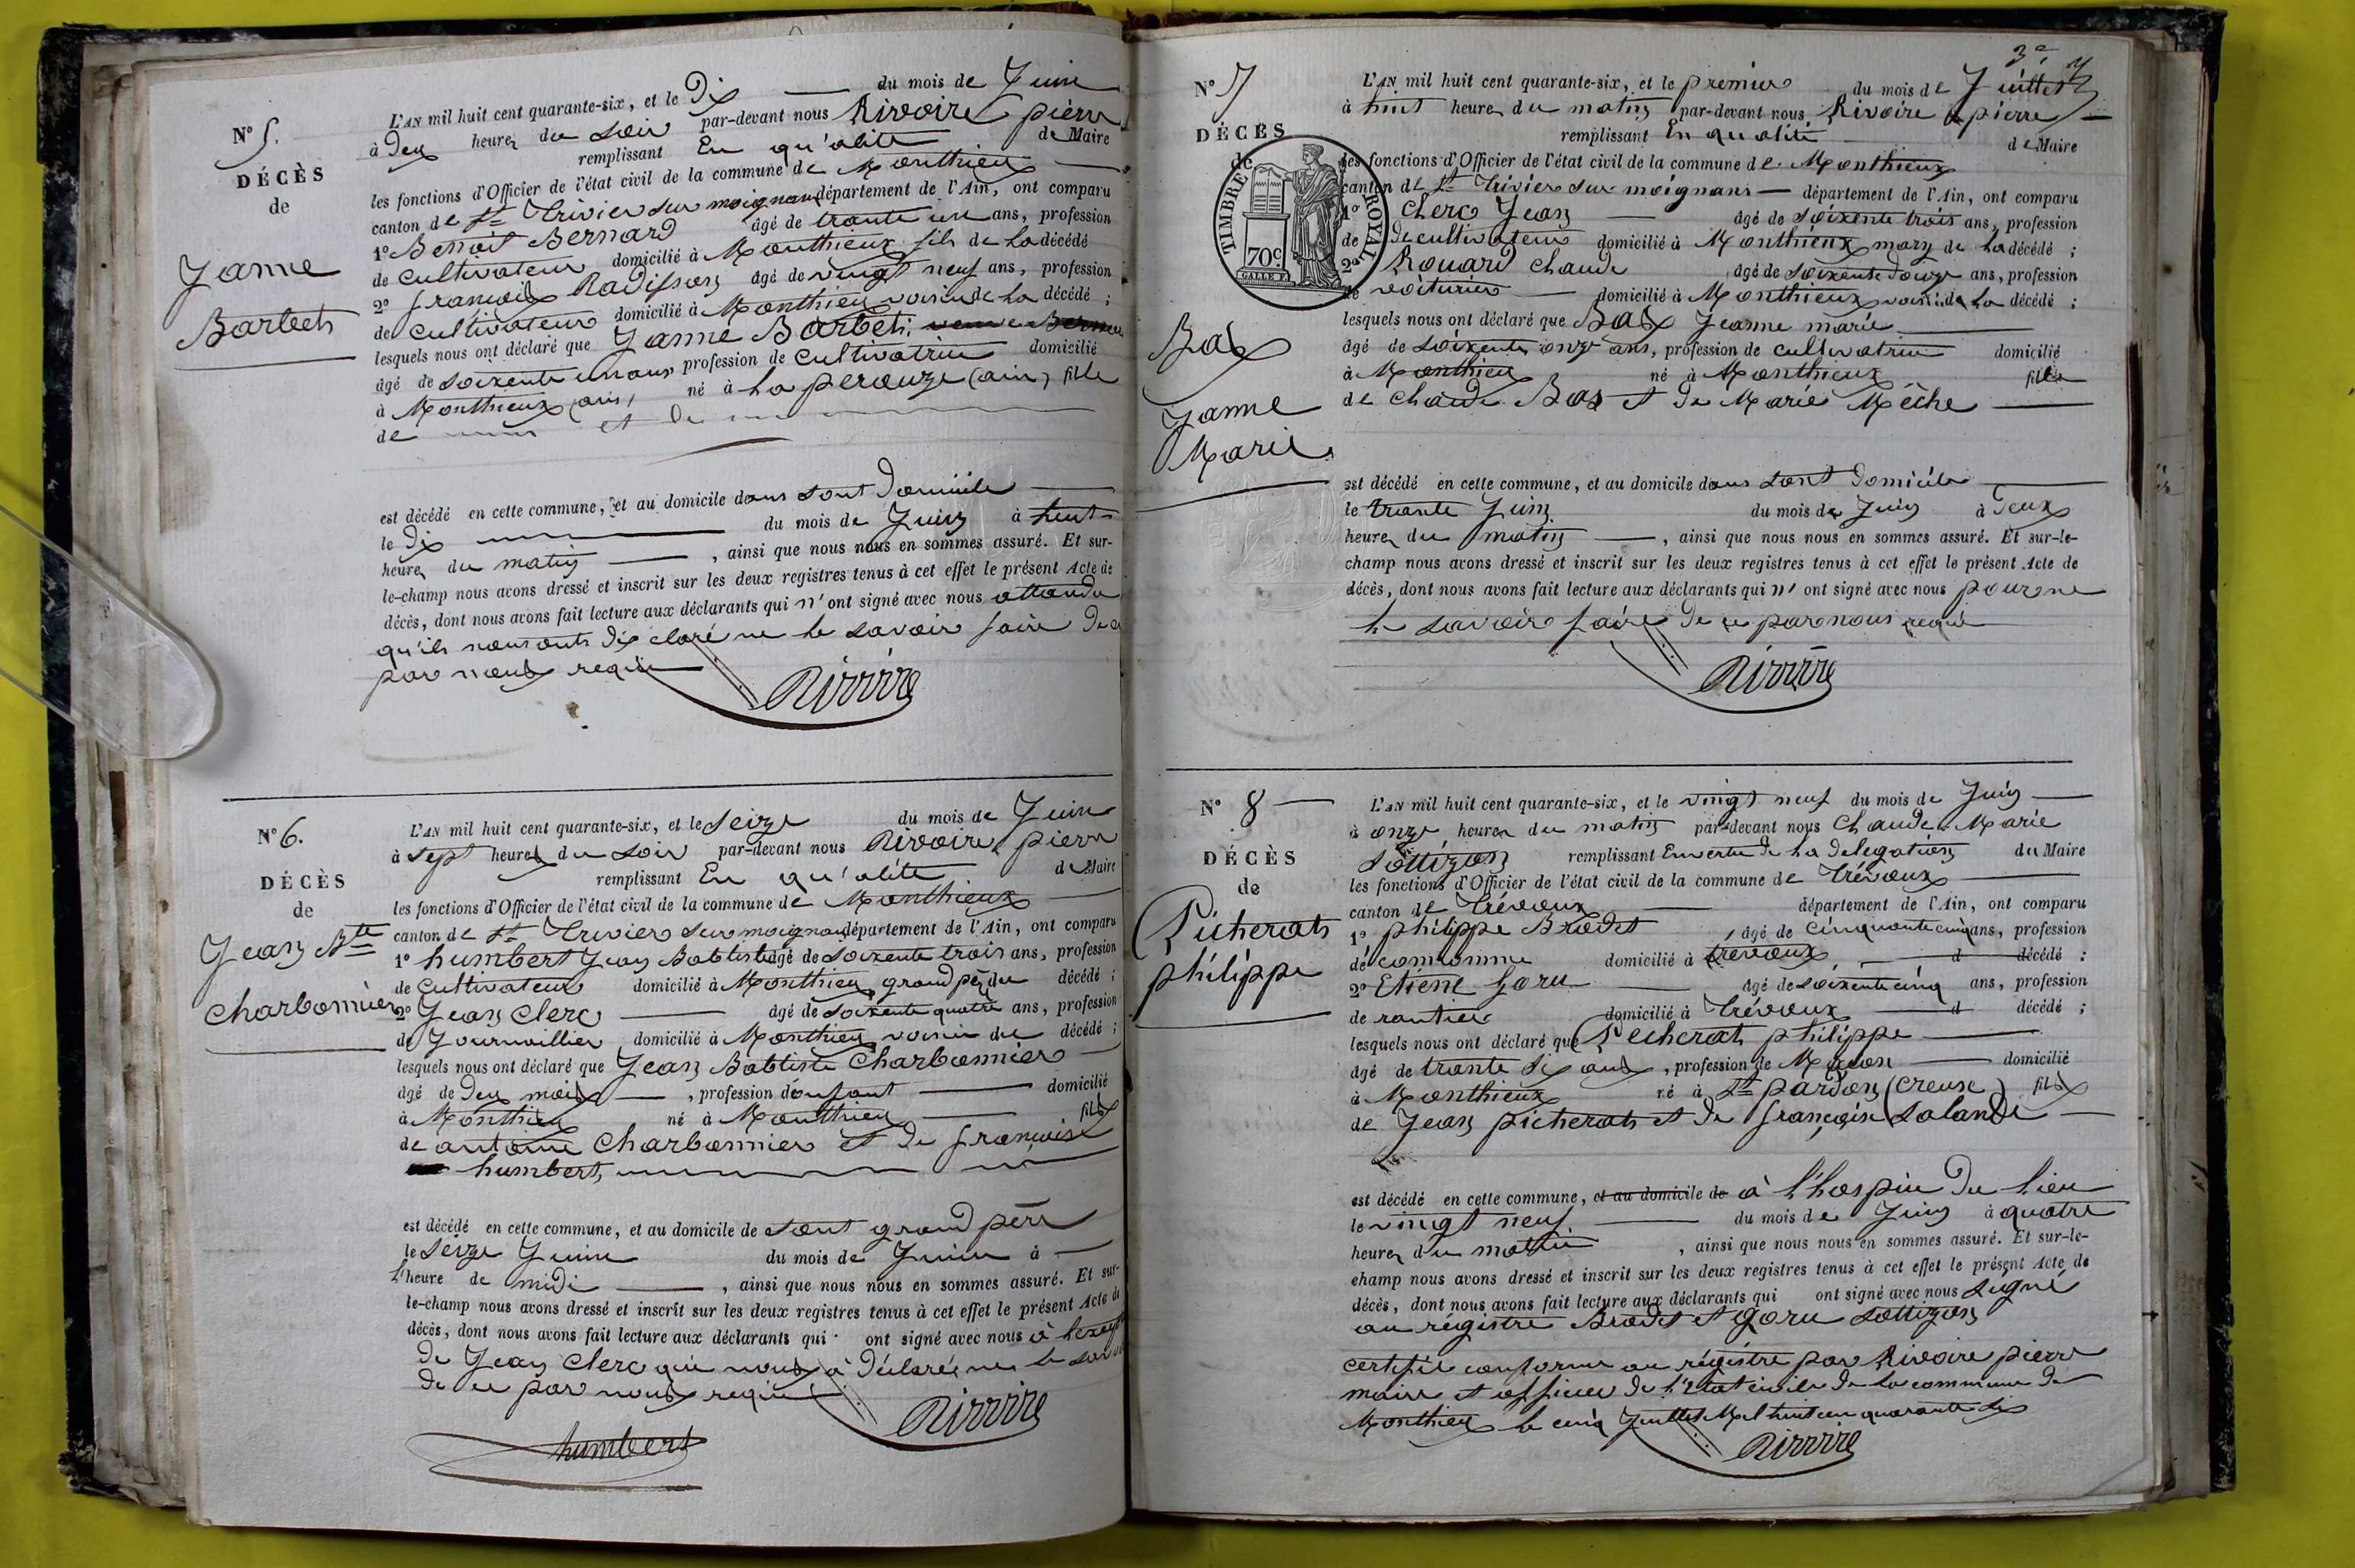 N° 5.
DÉCÈS
de
Janne
Barbets
L'AN mil huit cent quarante-six, et le Dix du mois de Juin
à Deux heures du Soir par-devant nous Rivoire pierre
remplissant En qu'alité de Maire
les fonctions d'Officier de l'état civil de la commune de Monthieux
canton de St Trivier sur moignans département de l'Ain, ont comparu
1° Benoit Bernard âgé de trante un ans, profession
de Cultivateur domicilié à Monthieux fils de la décédé
2° françois Radisson âgé de vingt neuf ans, profession
de Cultivateur domicilié à Monthieux voisin de la décédé ;
lesquels nous ont déclaré que Janne Barbets
âgé de soixente un ans profession de Cultivatrice domicilié
à Monthieux (ain) né à La perouze (ain) fille
de et de
est décédé en cette commune, et au domicile dans sont Domicile
le Dix du mois de Juin à huit
heures du matin , ainsi que nous nous en sommes assuré. Et sur-
le-champ nous avons dressé et inscrit sur les deux registres tenus à cet effet le présent Acte de
décès, dont nous avons fait lecture aux déclarants qui n'ont signé avec nous attandu
qu'ils nous onts dix claré ne le savoir faire De ce
par nous requis
Rivoire
N° 6.
DÉCÈS
de
Jean Bte
Charbonnier
L'AN mil huit cent quarante-six, et le Seize du mois de Juin
à Sept heures du Soir par-devant nous Rivoire pierre
remplissant En qu'alité de Maire
les fonctions d'Officier de l'état civil de la commune de Monthieux
canton de St Trivier sur moignans département de l'Ain, ont comparu
1° humbert Jean Babtiste âgé de soixente trois ans, profession
de Cultivateur domicilié à Monthieux grand père du décédé ;
2° Jean Clerc âgé de soixente quatre ans, profession
de Journaillier domicilié à Monthieux voisin du décédé ;
lesquels nous ont déclaré que Jean Babtiste Charbonnier
âgé de Deux mois , profession d'enfant domicilié
à Monthieux né à Monthieux fils
de antoine Charbonnier et de françoise
humbert
est décédé en cette commune, et au domicile de sont grand père
le Seize Juin du mois de Juin à
l'heure de midi , ainsi que nous nous en sommes assuré. Et sur-
le-champ nous avons dressé et inscrit sur les deux registres tenus à cet effet le présent Acte de
décès, dont nous avons fait lecture aux déclarants qui ont signé avec nous à
de Jean Clerc qui nous à déclaré ne le
de ce par nous requis
Rivoire
humbert
3e
N° 7
DÉCÈS
de
TIMBRE ROYAL
70c
Bas
Janne
Marie
L'AN mil huit cent quarante-six, et le premier du mois de Juillet
à huit heures du matin par-devant nous Rivoire pierre
remplissant En qu'alité de Maire
les fonctions d'Officier de l'état civil de la commune de Monthieux
canton de St Trivier sur moignans département de l'Ain, ont comparu
1° Clerc Jean âgé de soixente trois ans, profession
de De cultivateur domicilié à Monthieux mary de la décédé ;
2° Rouard Claude âgé de soixente douze ans, profession
de voiturier domicilié à Monthieux voisin de la décédé ;
lesquels nous ont déclaré que Bas Jeanne marie
âgé de soixente onze ans, profession de cultivatrice domicilié
à Monthieux né à Monthieux fille
de Claude Bas et de Marie Mèche
est décédé en cette commune, et au domicile dans sont Domicile
le trante Juin du mois de Juin à Deux
heures du matin , ainsi que nous nous en sommes assuré. Et sur-le-
champ nous avons dressé et inscrit sur les deux registres tenus à cet effet le présent Acte de
décès, dont nous avons fait lecture aux déclarants qui n' ont signé avec nous pour ne
le savoir faire De ce par nous requis
Rivoire
N° 8
DÉCÈS
de
Picherats
philippe
L'AN mil huit cent quarante-six, et le vingt neuf du mois de Juin
à onze heures du matin par-devant nous Claude Marie
Sottizon remplissant En vertu de la Delegation du Maire
les fonctions d'Officier de l'état civil de la commune de Trévoux
canton de Trévoux département de l'Ain, ont comparu
1° philippe Brodet âgé de cinquante cinq ans, profession
de domicilié à trevoux d décédé ;
2° Etiene goru âgé de soixente cinq ans, profession
de rantier domicilié à Trévoux d décédé ;
lesquels nous ont déclaré que Pecherat philippe
âgé de trante six ans , profession de Maçon domicilié
à Monthieux né à St pardon (Creuse) fils
de Jean picherats et de françoise Salande
est décédé en cette commune, et au domicile de à l'hospice Du lieu
le vingt neuf du mois de Juin à quatre
heures du matin , ainsi que nous nous en sommes assuré. Et sur-le-
champ nous avons dressé et inscrit sur les deux registres tenus à cet effet le présent Acte de
décès, dont nous avons fait lecture aux déclarants qui ont signé avec nous Signé
au régistre Brodet et goru Sottizon
certifié conforme au régistre par Rivoire pierre
maire et officier de l'état civile de la commune de
Monthieux le cinq Juillet Mil huit cen quarante six
Rivoire